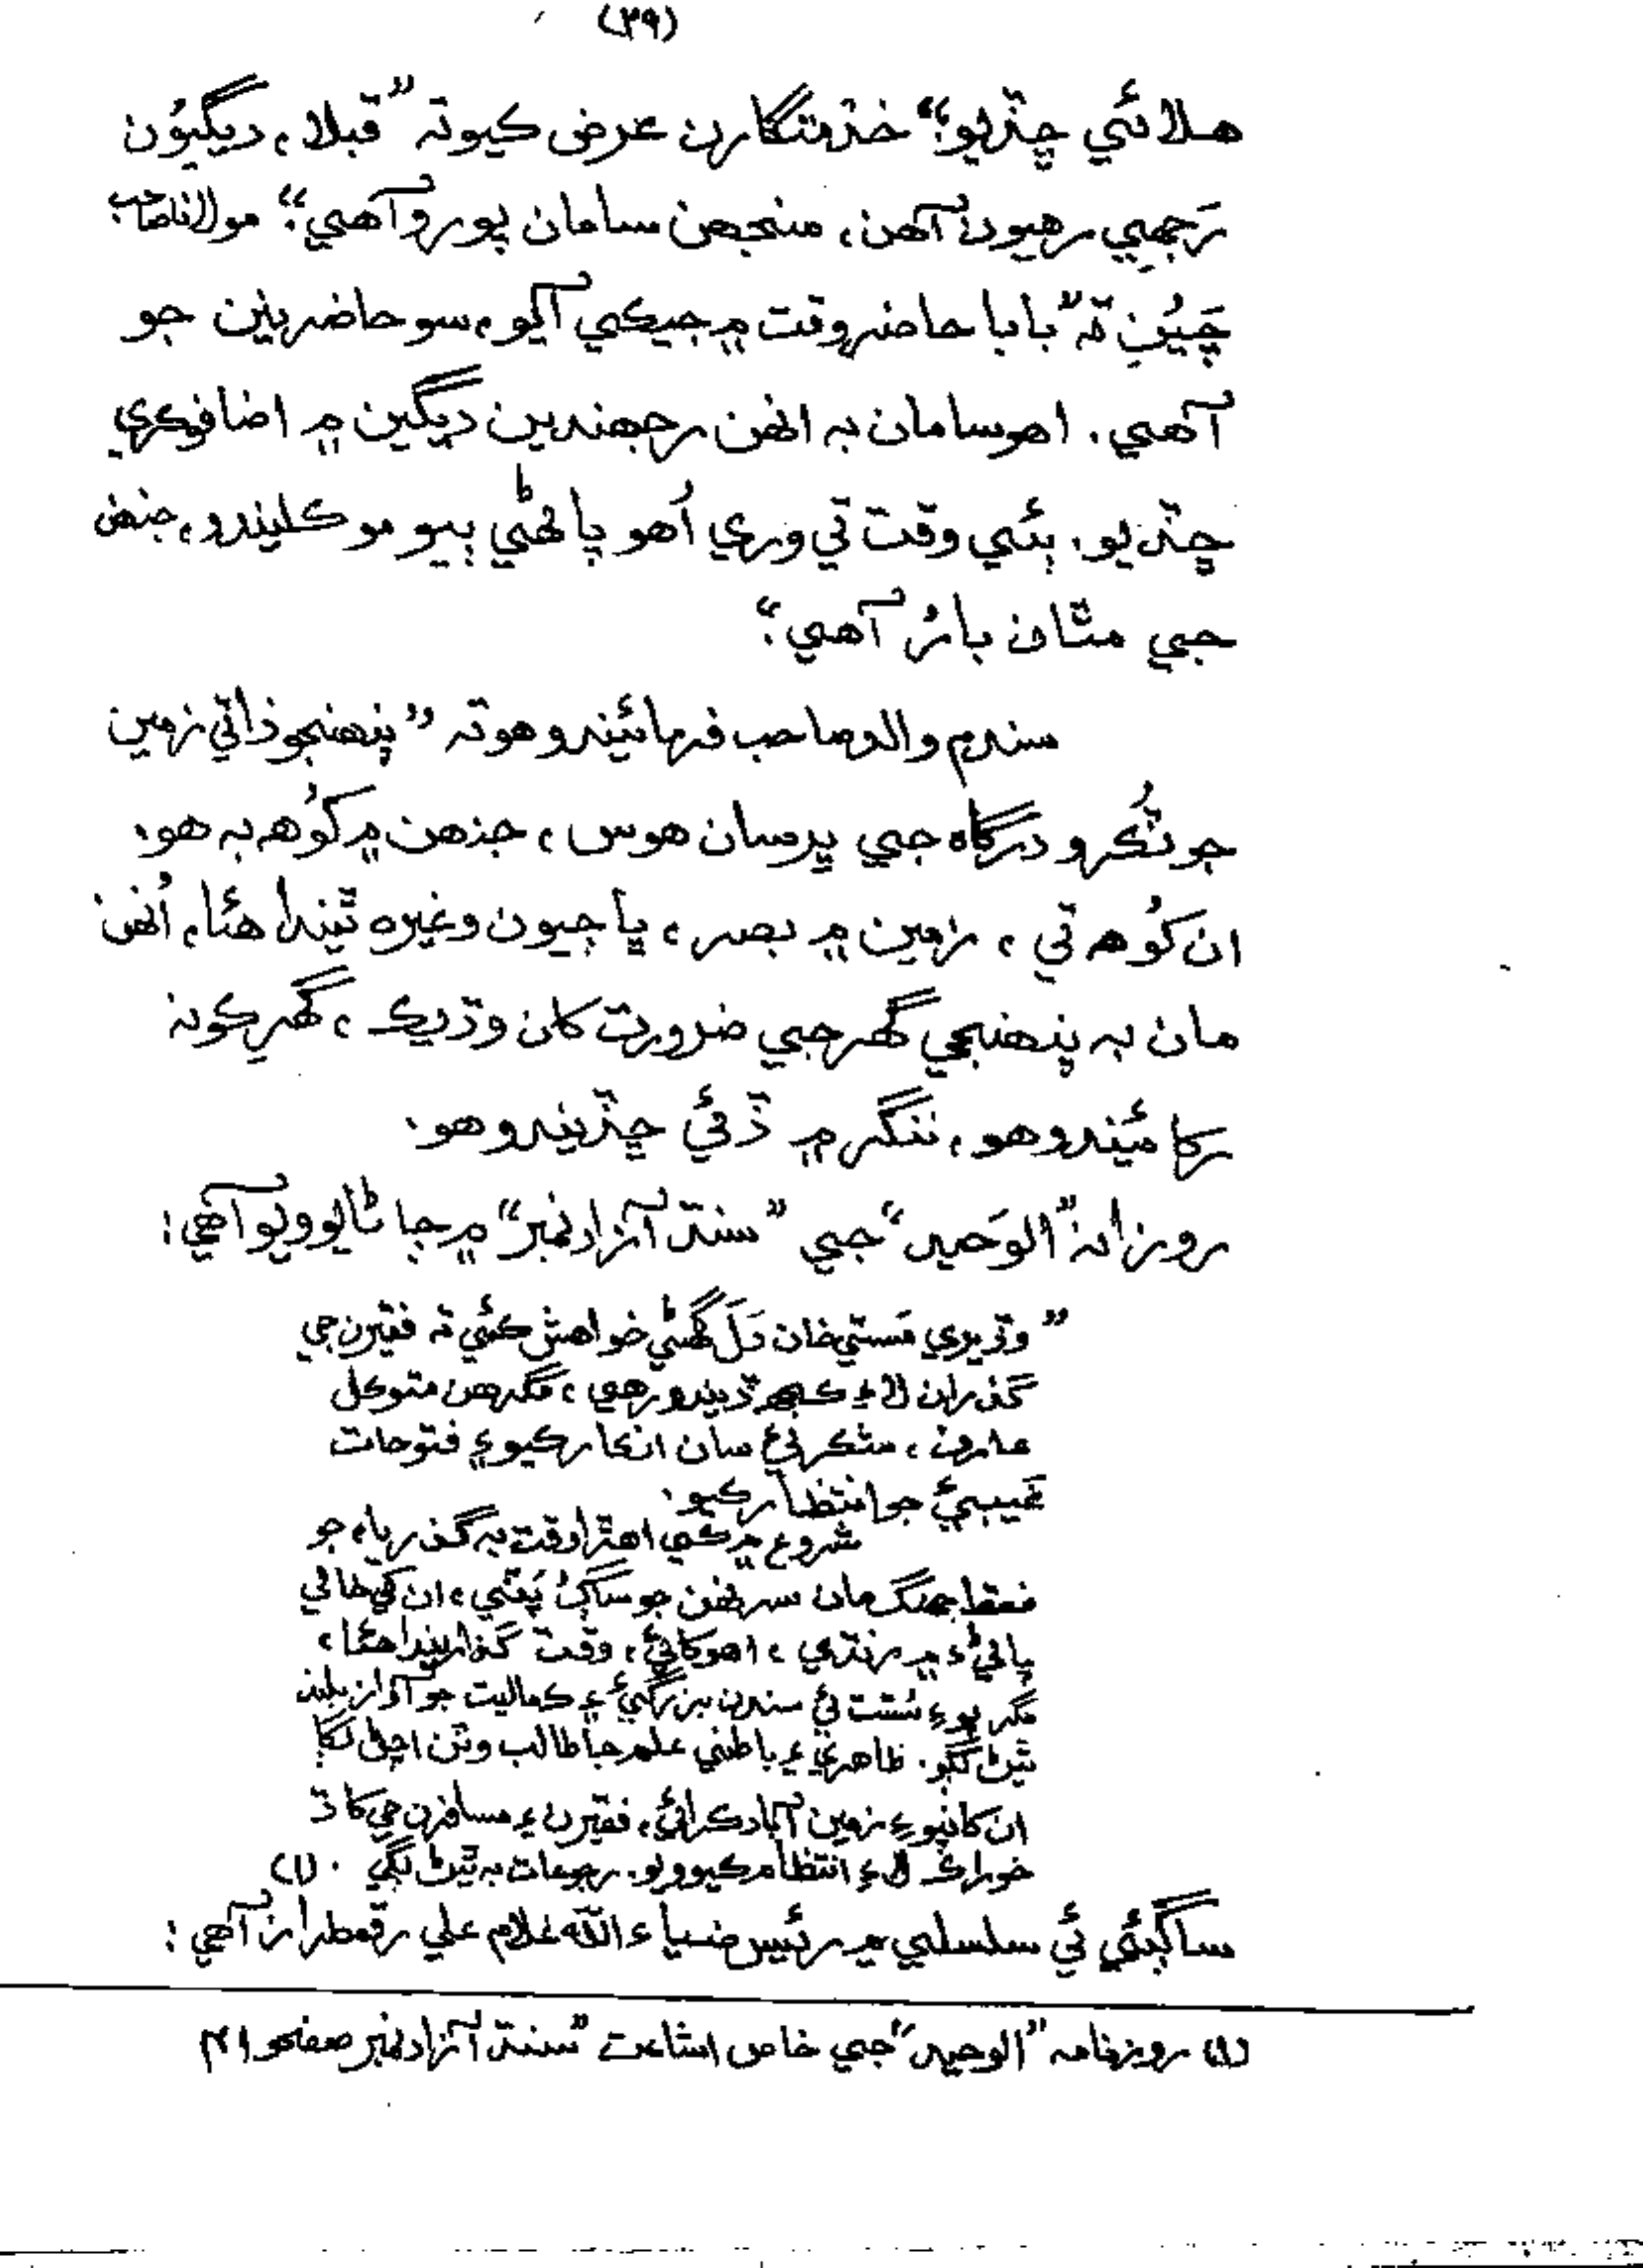 (٣٩)
هلائي ڇڏيو“؛ خذمتگارن عرض ڪيو ته ”قبلا، ديڳيُون
رَجهي رهيون آهن، منجهن سامان پورو آهي.“ مولانا صاحب
چَيُن ته ”بابا حاضر وقت ۾ جيڪي آيو، سو حاضرينن جو
آهي. اهو سامان به انهن رجهندين ديڳين ۾ اضافو ڪري
ڇڏيو. ٻئي وقت تي وري اُهو پاڻهي پيو موڪليندو، جنهن
جي مٿان بارُ آهي.“
سندم والد صاحب فرمائيندو هو ته ”پنهنجو ذاتي زمين
جو ٽُڪرو درگاه جي ڀرسان هوس، جنهن ۾ کُوهه به هو.
ان کُوهه تي، زمين ۾ بصر، ڀاڄيون وغيره ٿيندا هئا، اُنهن
مان به پنهنجي گهر جي ضرورت کان وڌيڪ، گهر ڪونه
رکائيندو هو، لنگر ۾ ڏئي ڇڏيندو هو.
روزانه ”الوَحيد“ جي ”سنڌ آزاد نمبر“ ۾ ڄاڻايو ويو آهي:
”وڏيري مَستي خان دَلَ گهڻي خواهش ڪئي ته فقيرن جي
گذران لاءِ ڪجهه ڏيندو رهي، مگر هن متوڪل
عارف، شڪرئي سان انڪار ڪيو ۽ فتوحات
غيبيءَ جو انتظار ڪيو.
شروع ۾ ڪي اهڙا وقت به گذريا، جو
فقط جهنگ مان سرنهن جو ساڳُ پَٽي، ان کي خالي
پاڻيءَ ۾ رنڌي، اهو کائي، وقت گذاريندا هئا،
مگر پوءِ سندن بزرگيءَ ۽ ڪماليت جو آواز بلند
ٿيڻ لڳو. ظاهري ۽ باطني علم جا طالب وٽن اچڻ لڳا
ان کانپوءِ زمين آباد ڪرائي، فقيرن ۽ مسافرن جي کاڌ
خوراڪ لاءِ انتظام ڪيو ويو. رجوعات به ٿيڻ لڳي. (١)
ساڳئي ئي سلسلي ۾ رئيس ضياءالله غلام علي رقمطراز آهي:
(١) روزنامه ”الوحيد“ جي خاص اشاعت ”سنڌ آزاد نمبر صفحو ٢١